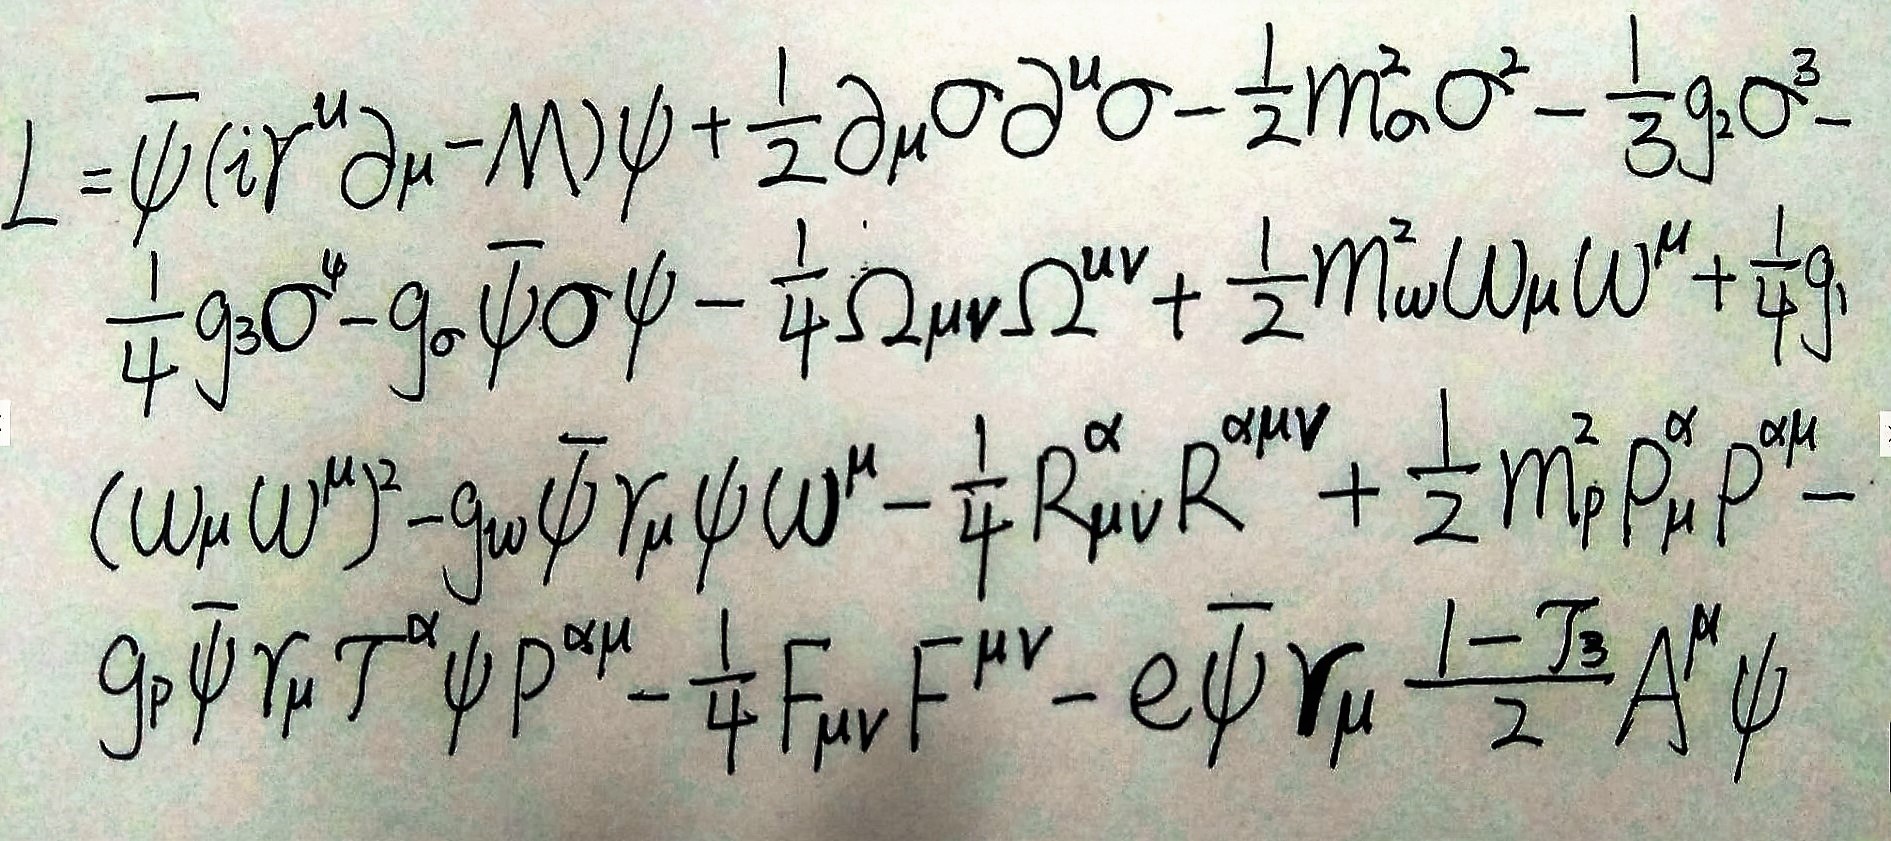 L = ψ̄(iγ^μ∂_μ − M)ψ + 1/2 ∂_μσ∂^μσ − 1/2 m_σ^2 σ^2 − 1/3 g_2σ^3 −
1/4 g_3σ^4 − g_σ ψ̄σψ − 1/4 Ω_μν Ω^μν + 1/2 m_ω^2 ω_μ ω^μ + 1/4 g_1
(ω_μ ω^μ)^2 − g_ω ψ̄ γ_μ ψ ω^μ − 1/4 R^α_μν R^αμν + 1/2 m_ρ^2 ρ^α_μ ρ^αμ −
g_ρ ψ̄ γ_μ τ^α ψ ρ^αμ − 1/4 F_μν F^μν − e ψ̄ γ_μ (1 − τ_3)/2 A^μ ψ